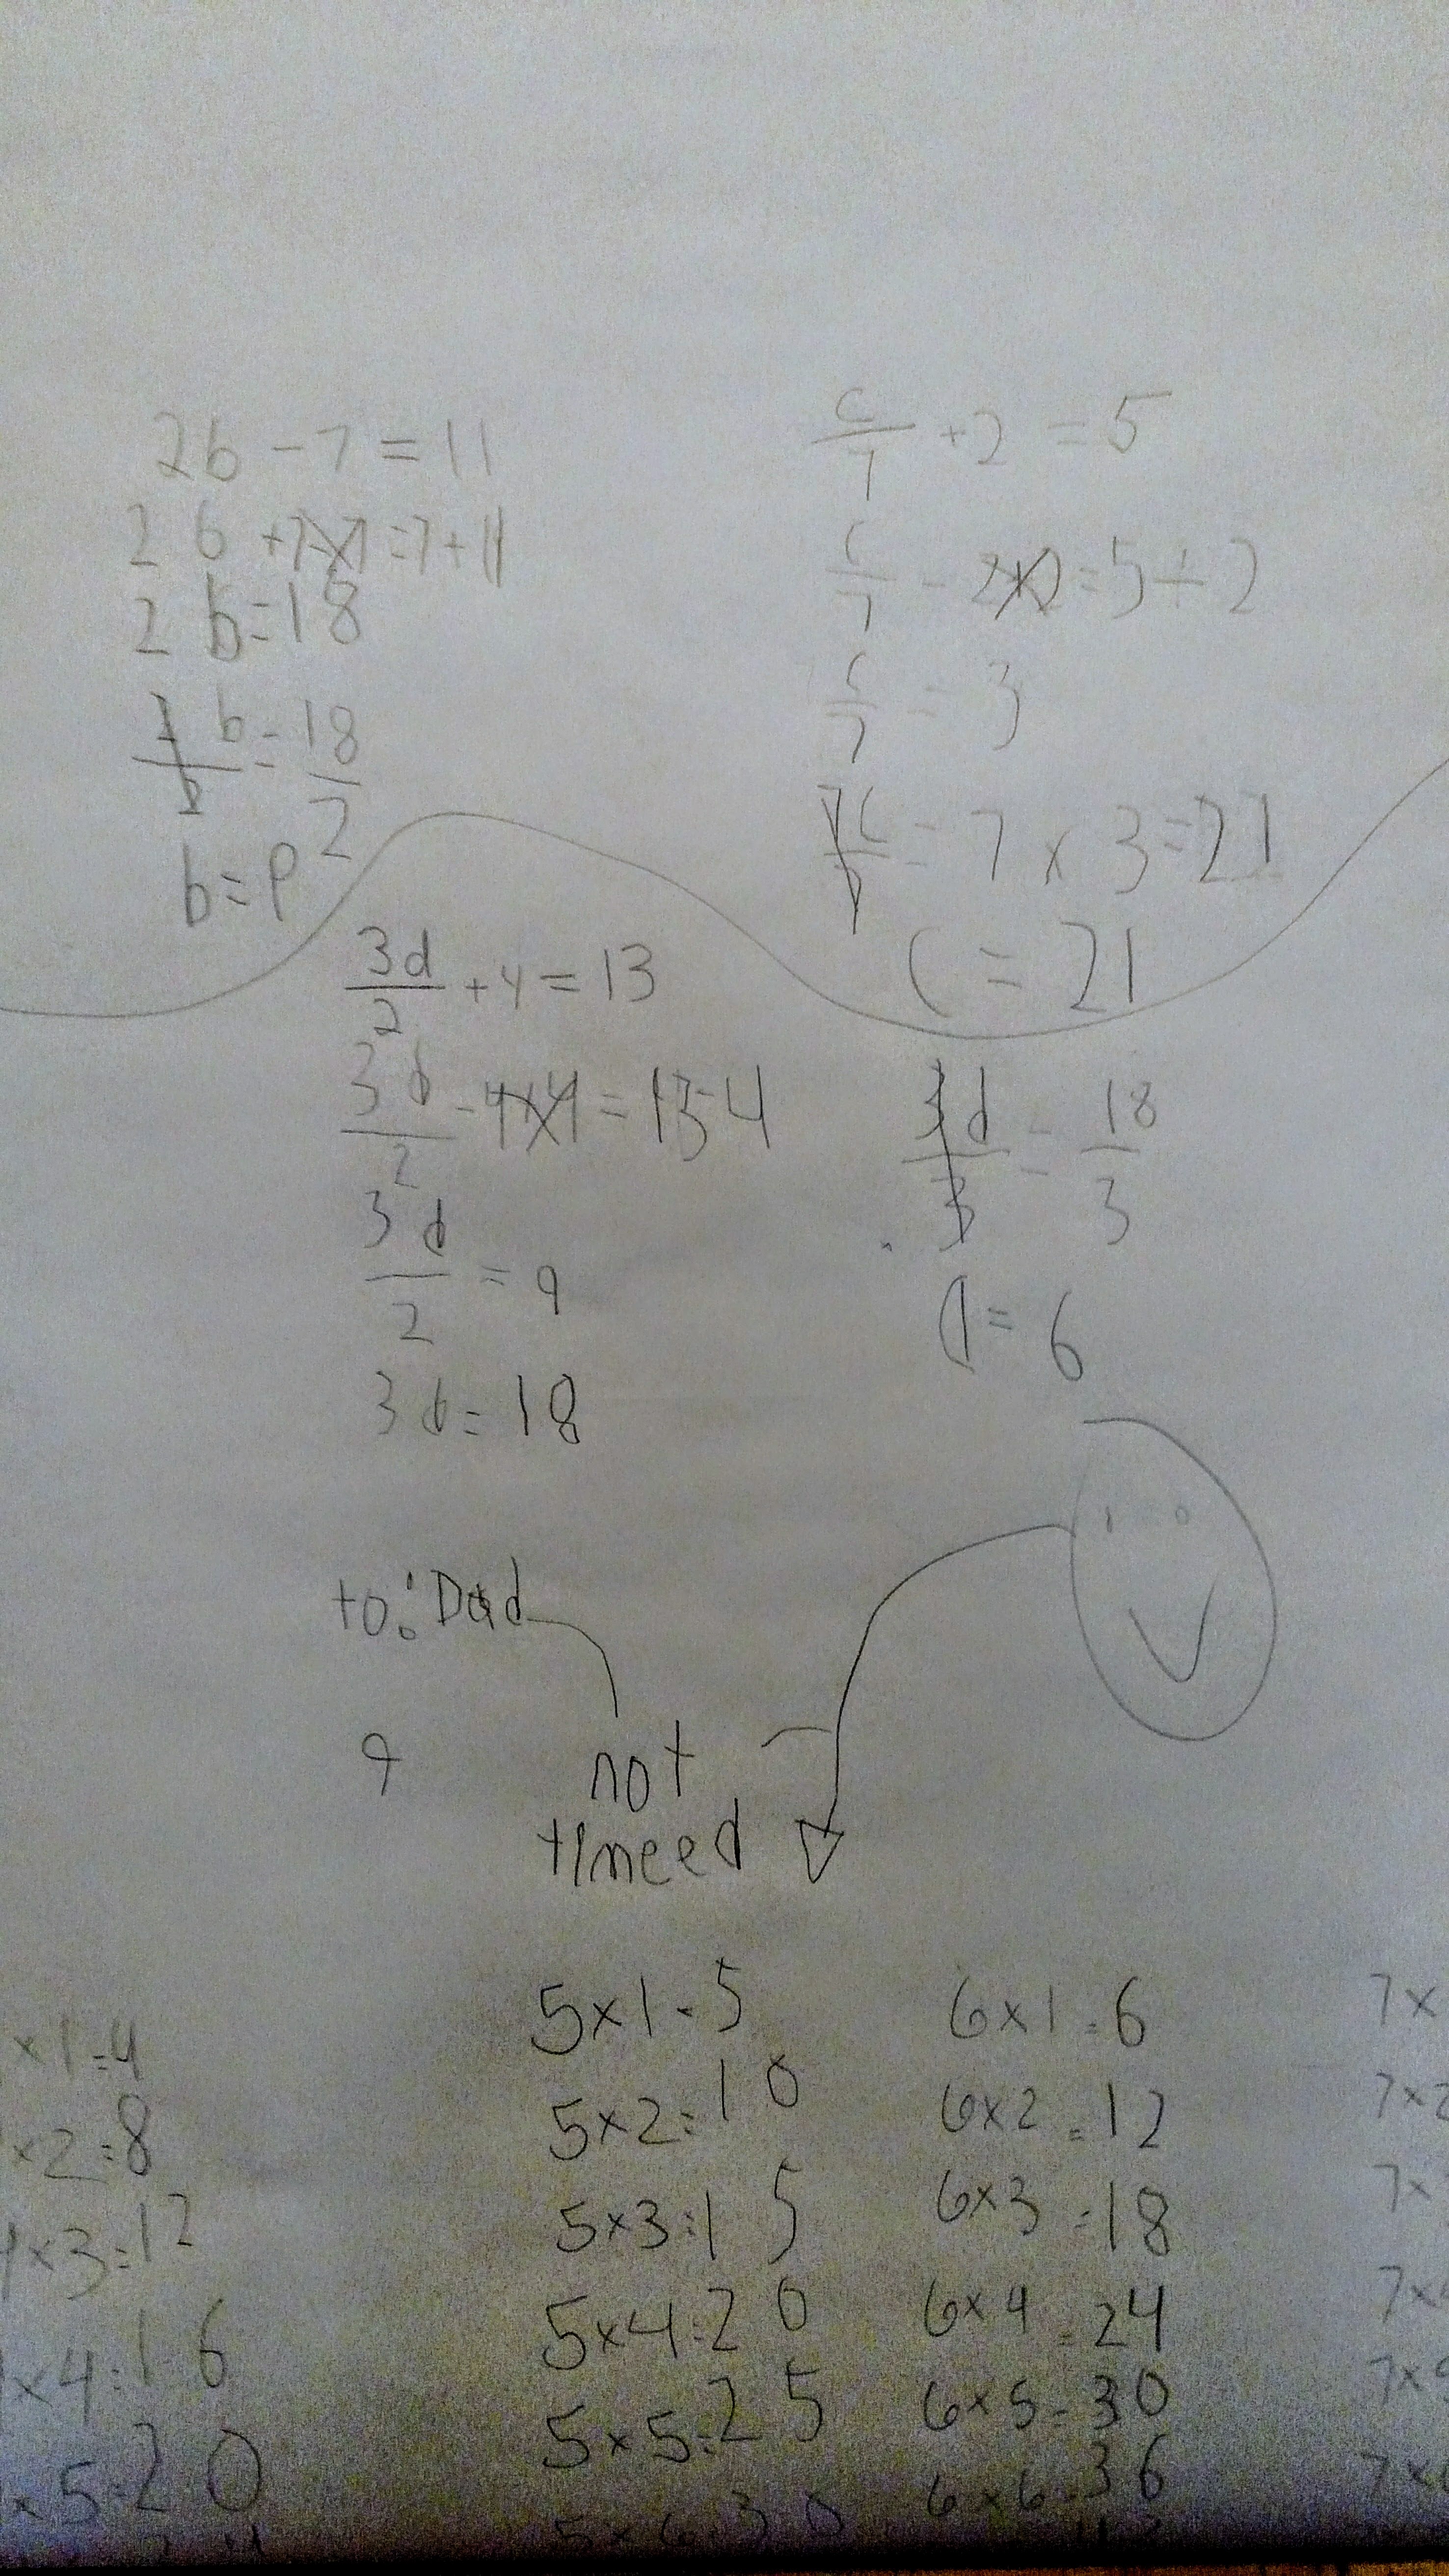 2b - 7 = 11
2 b +7-7 = 7+11
2 b = 18
2 b / 2 = 18 / 2
b = 9
c / 7 + 2 = 5
c / 7 - 2+2 = 5 ÷ 2
c / 7 = 3
7c / 7 = 7 x 3 = 21
c = 21
3d / 2 + 4 = 13
3d / 2 - 4+4 = 13-4
3d / 2 = 9
3d = 18
3d / 3 = 18 / 3
d = 6
to: Dad
9
not
timeed
x1=4
x2=8
4x3=12
x4=16
x5=20
5x1=5
5x2=10
5x3=15
5x4=20
5x5=25
5x6=30
6x1=6
6x2=12
6x3=18
6x4=24
6x5=30
6x6=36
7x
7x2
7x
7x
7x
7x